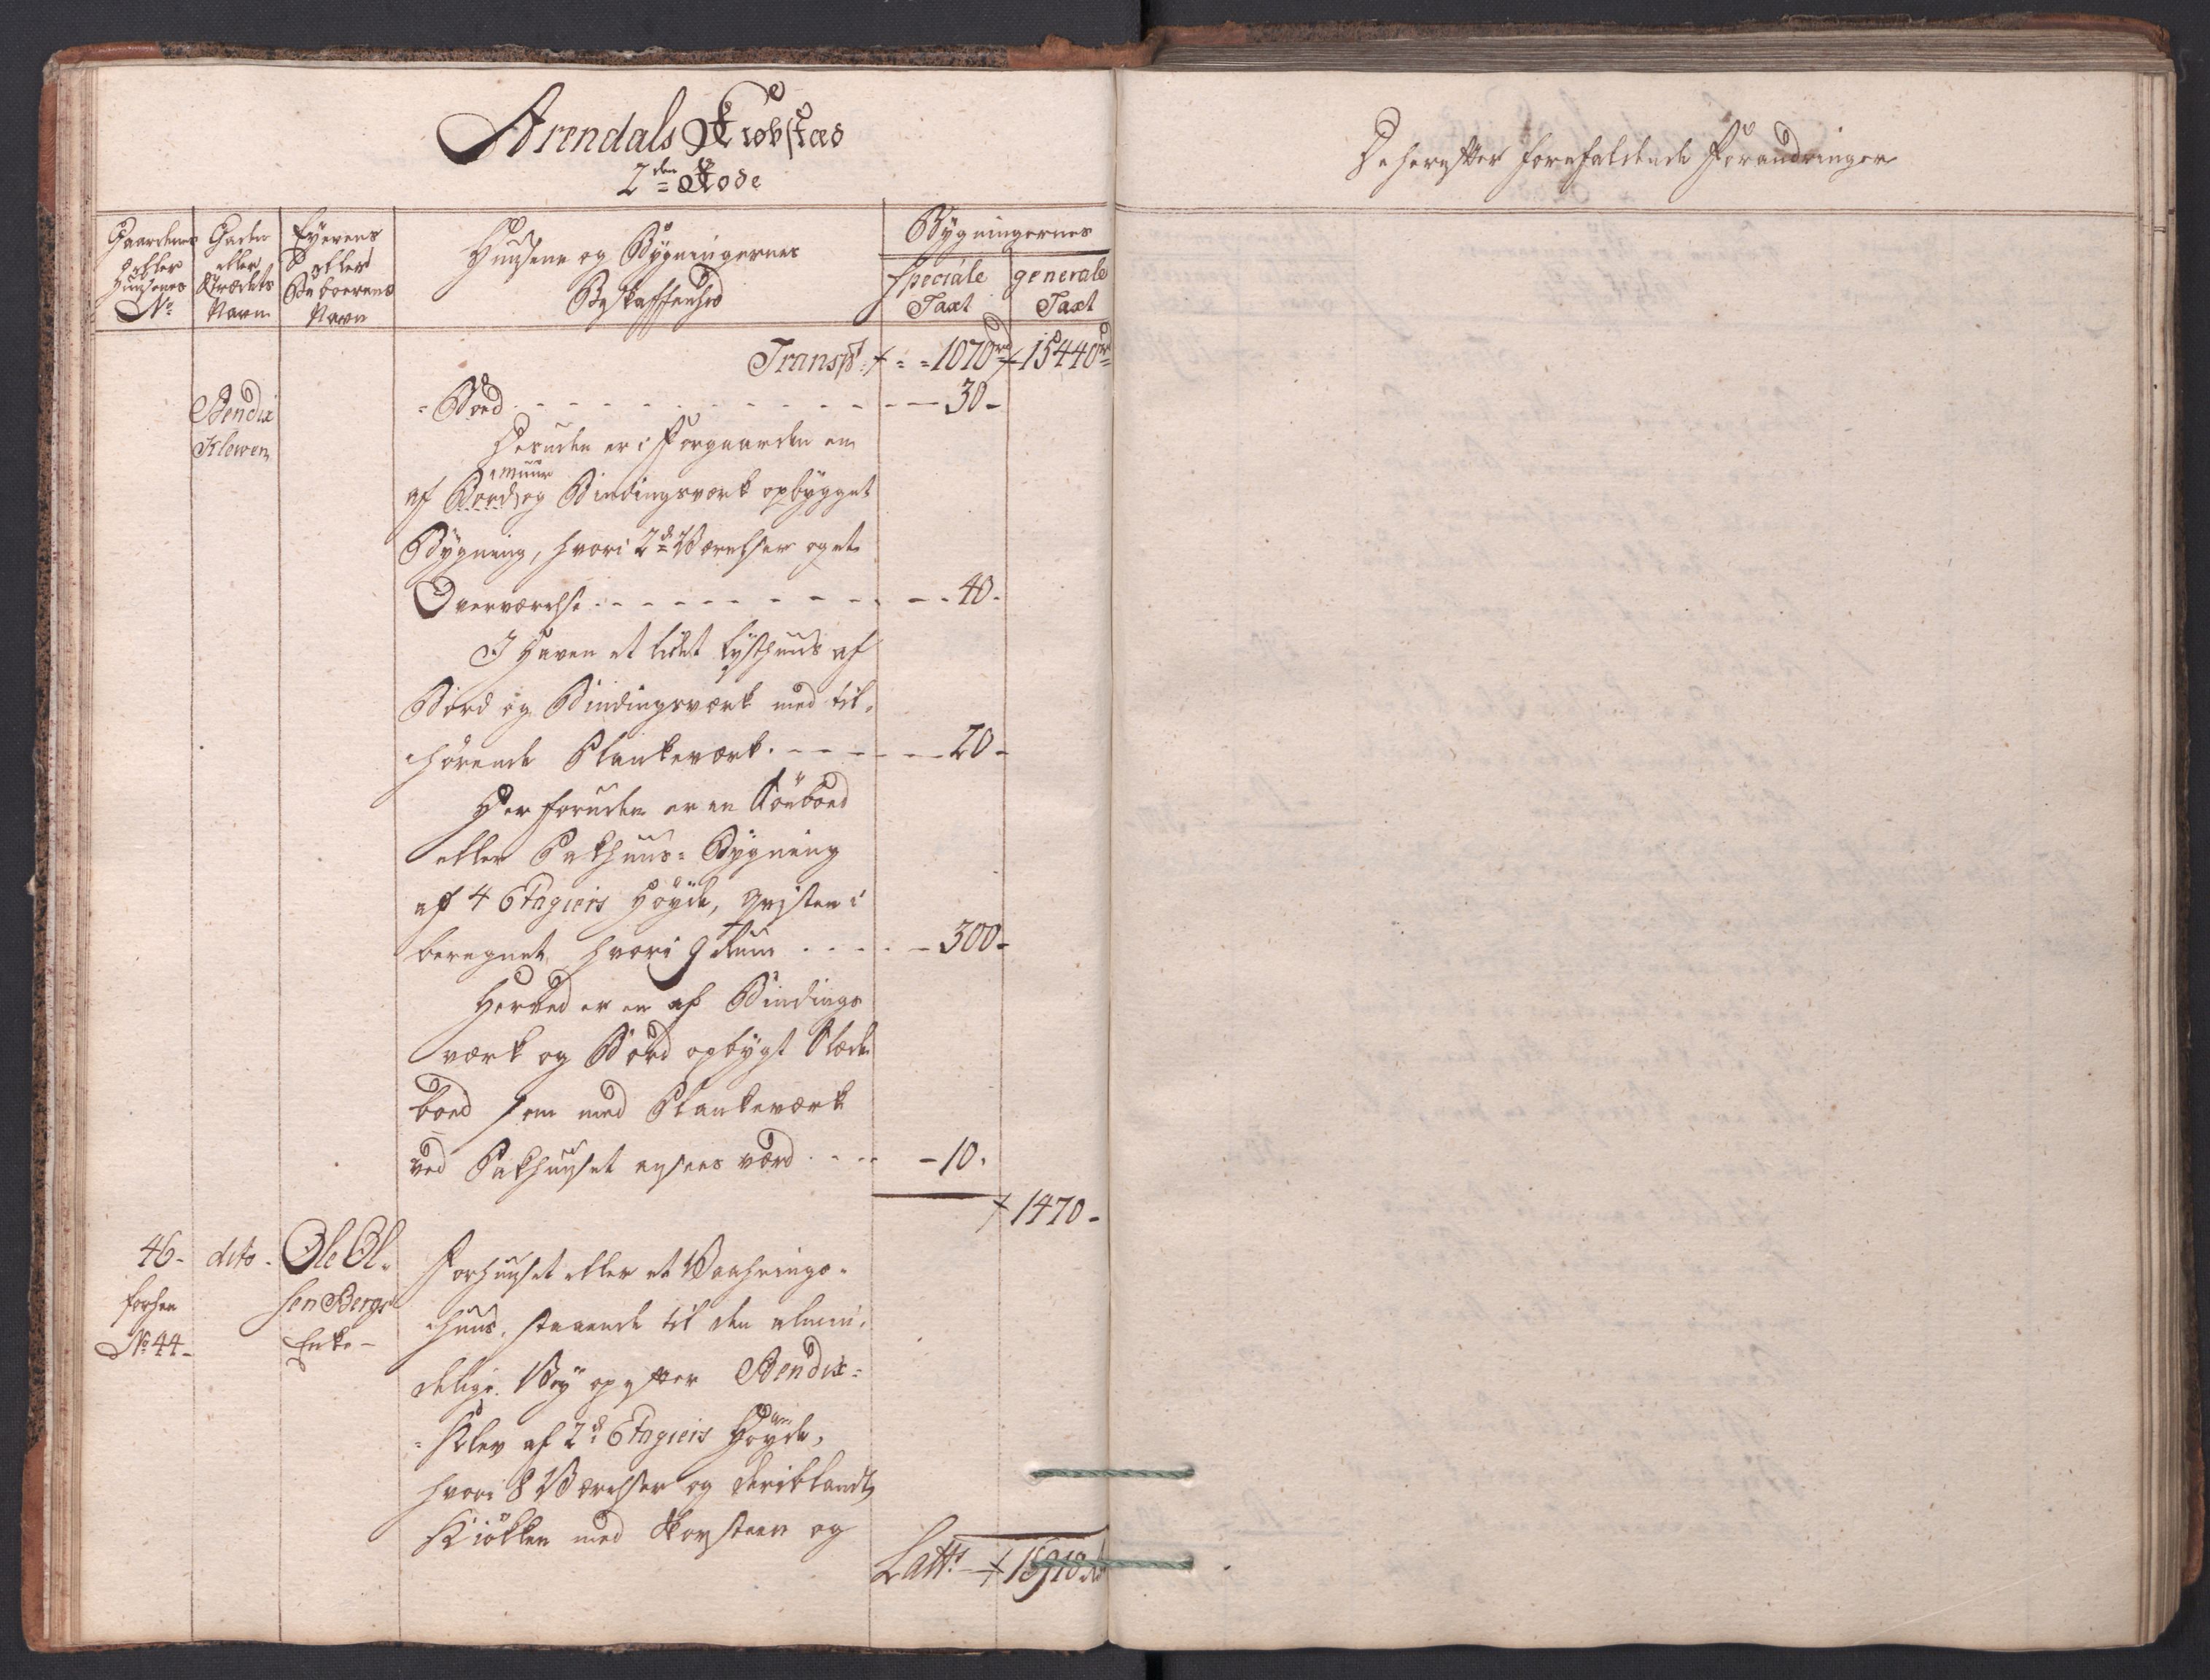 Arendals Kiøbstæd
2den Rode
Gaardenes eller Huusenes No
Gaden eller Strædets Navn
Eyerens eller Beboerens Navn
Huusene og Bygningernes Beskaffenhed
Bygningernes
speciale Taxt
generale Taxt
Transpt 1070rd 15440rd
Bendix
Klewen
Bord - - - 30 -
Desuden er i Forgaarden en
muur
af Bord og Bindingsværk opbygget
Bygning, hvori 2de Værelser og et
Overværelse - - - 40 -
I Haven et lidet Lysthuus af
Bord og Bindingsværk med til-
hørende Plankeværk - - - 20 -
Her foruden er en Søeboed
eller Pakhuus-Bygning
af 4 Etagiers Høyde, Qvisten i
beregnet, hvori 9 Rum - - - 300 -
Herved er en af Bindings
værk og Bord opbygt Slæde
boed som med Plankeværk
ved Pakhuuset ansees værd - - - 10 -
1470 -
46 - dito - Ole Ol-
sen Bergs
Enke -
forhen
No 44 -
Forhuuset eller et Vaahnings-
huus, staaende til den almin-
delige Vey op efter Bendix-
Klev af 2de Etagiers Høyde,
hvori 8 Værelser og deriblandt
Kiøkken med Skorsteen og
Latts 16910rd
De herefter forefaldende Forandringer